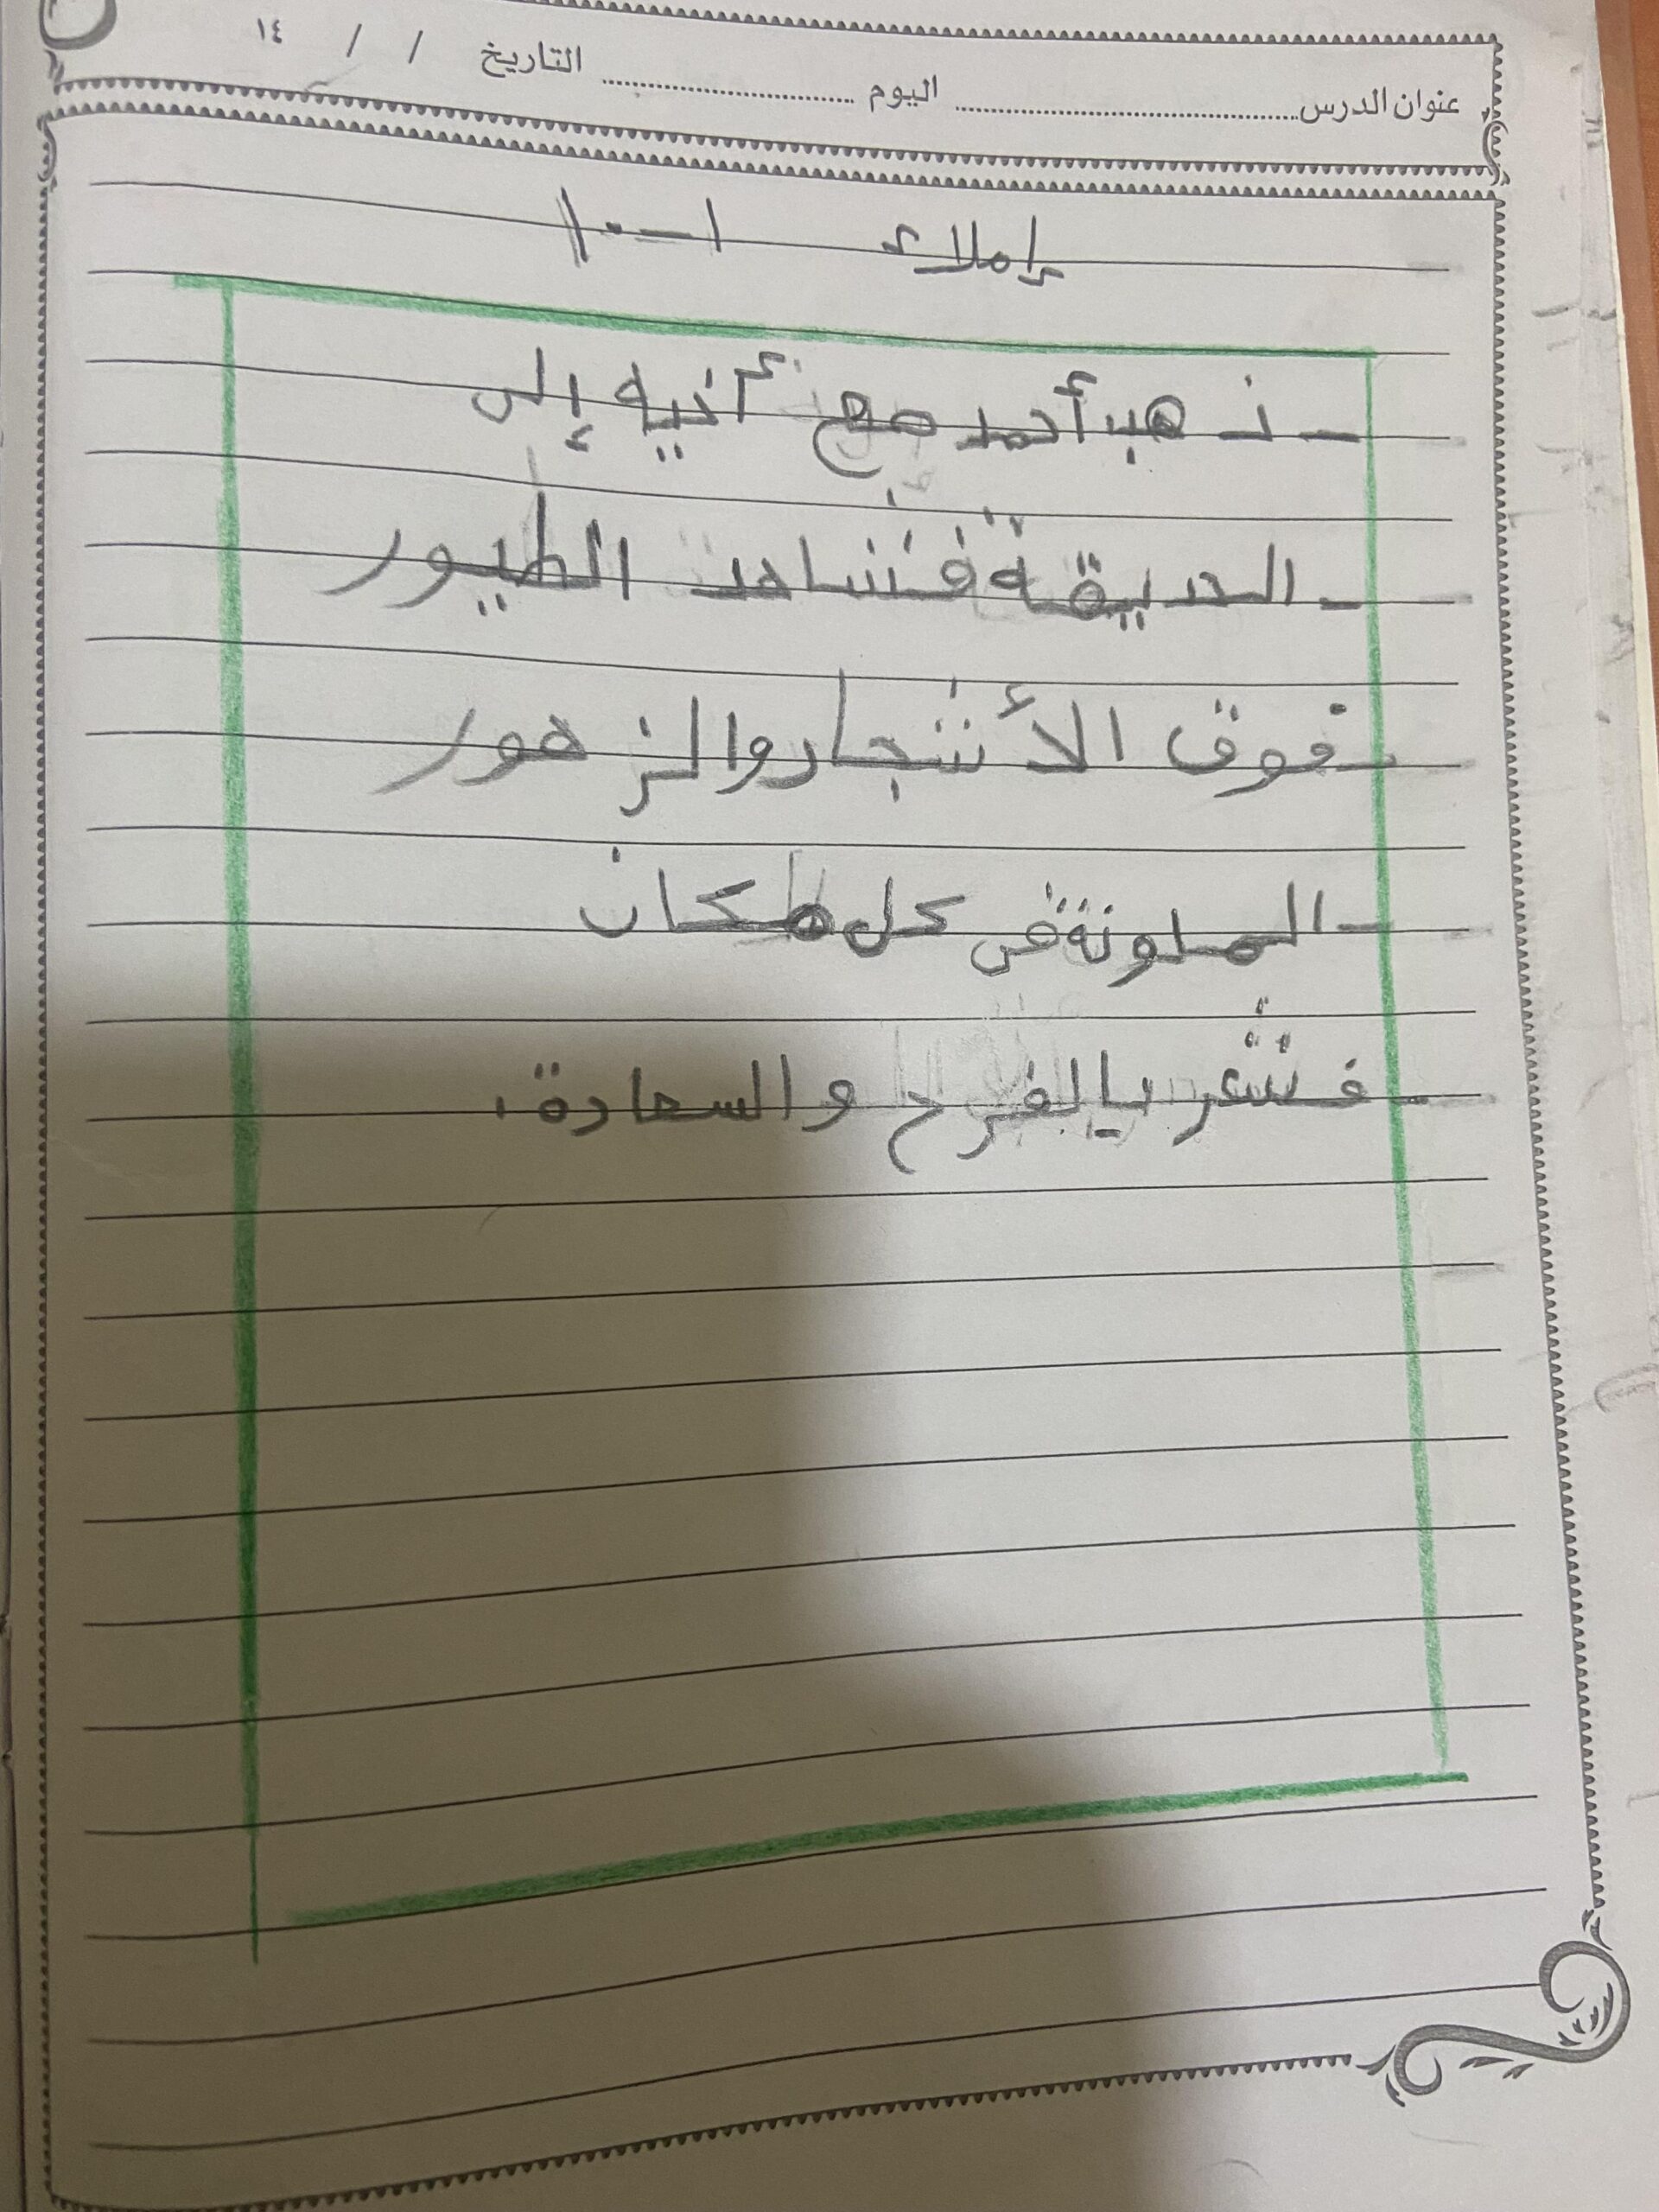 عنوان الدرس اليوم التاريخ / / ١٤
إملاء ١-١٠
- ذهب أحمد مع أخيه إلى
- الحديقة فشاهد الطيور
- فوق الأشجار والزهور
- الملونة في كل مكان
- فشعر بالفرح والسعادة.